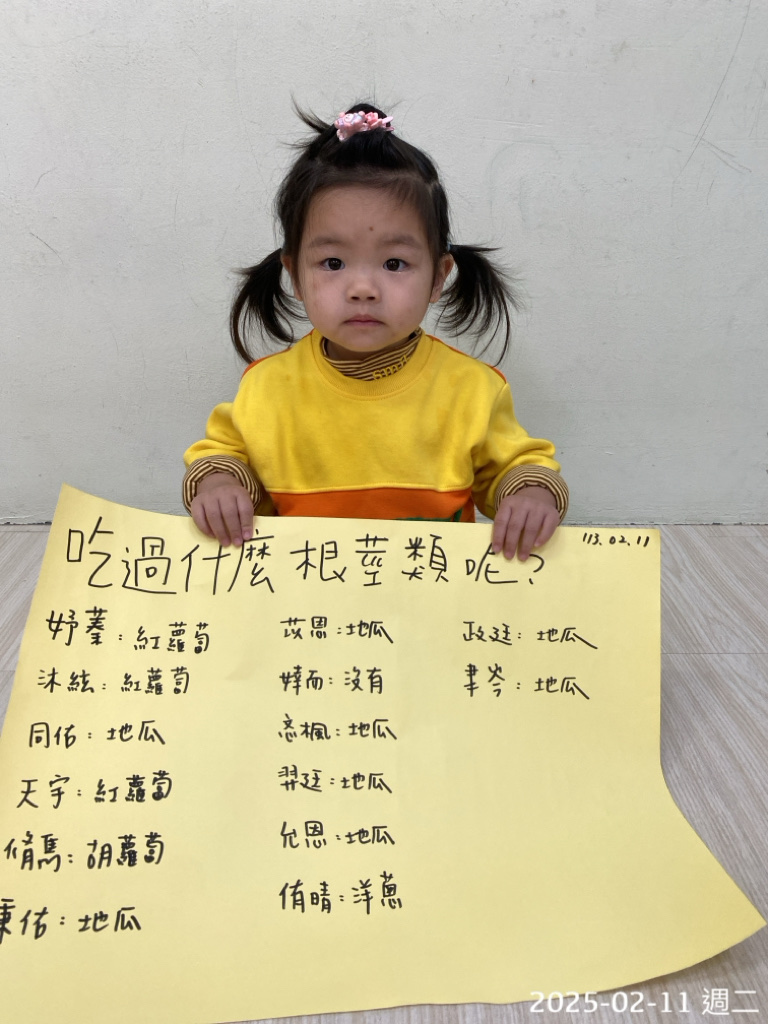 吃過什麼根莖類呢?
113.02.11
妤蓁:紅蘿蔔
沐紘:紅蘿蔔
同佑:地瓜
天宇:紅蘿蔔
脩馬:胡蘿蔔
秉佑:地瓜
苡恩:地瓜
婞而:沒有
悆楓:地瓜
羿廷:地瓜
允恩:地瓜
侑晴:洋蔥
政廷:地瓜
聿岑:地瓜
2025-02-11 週二